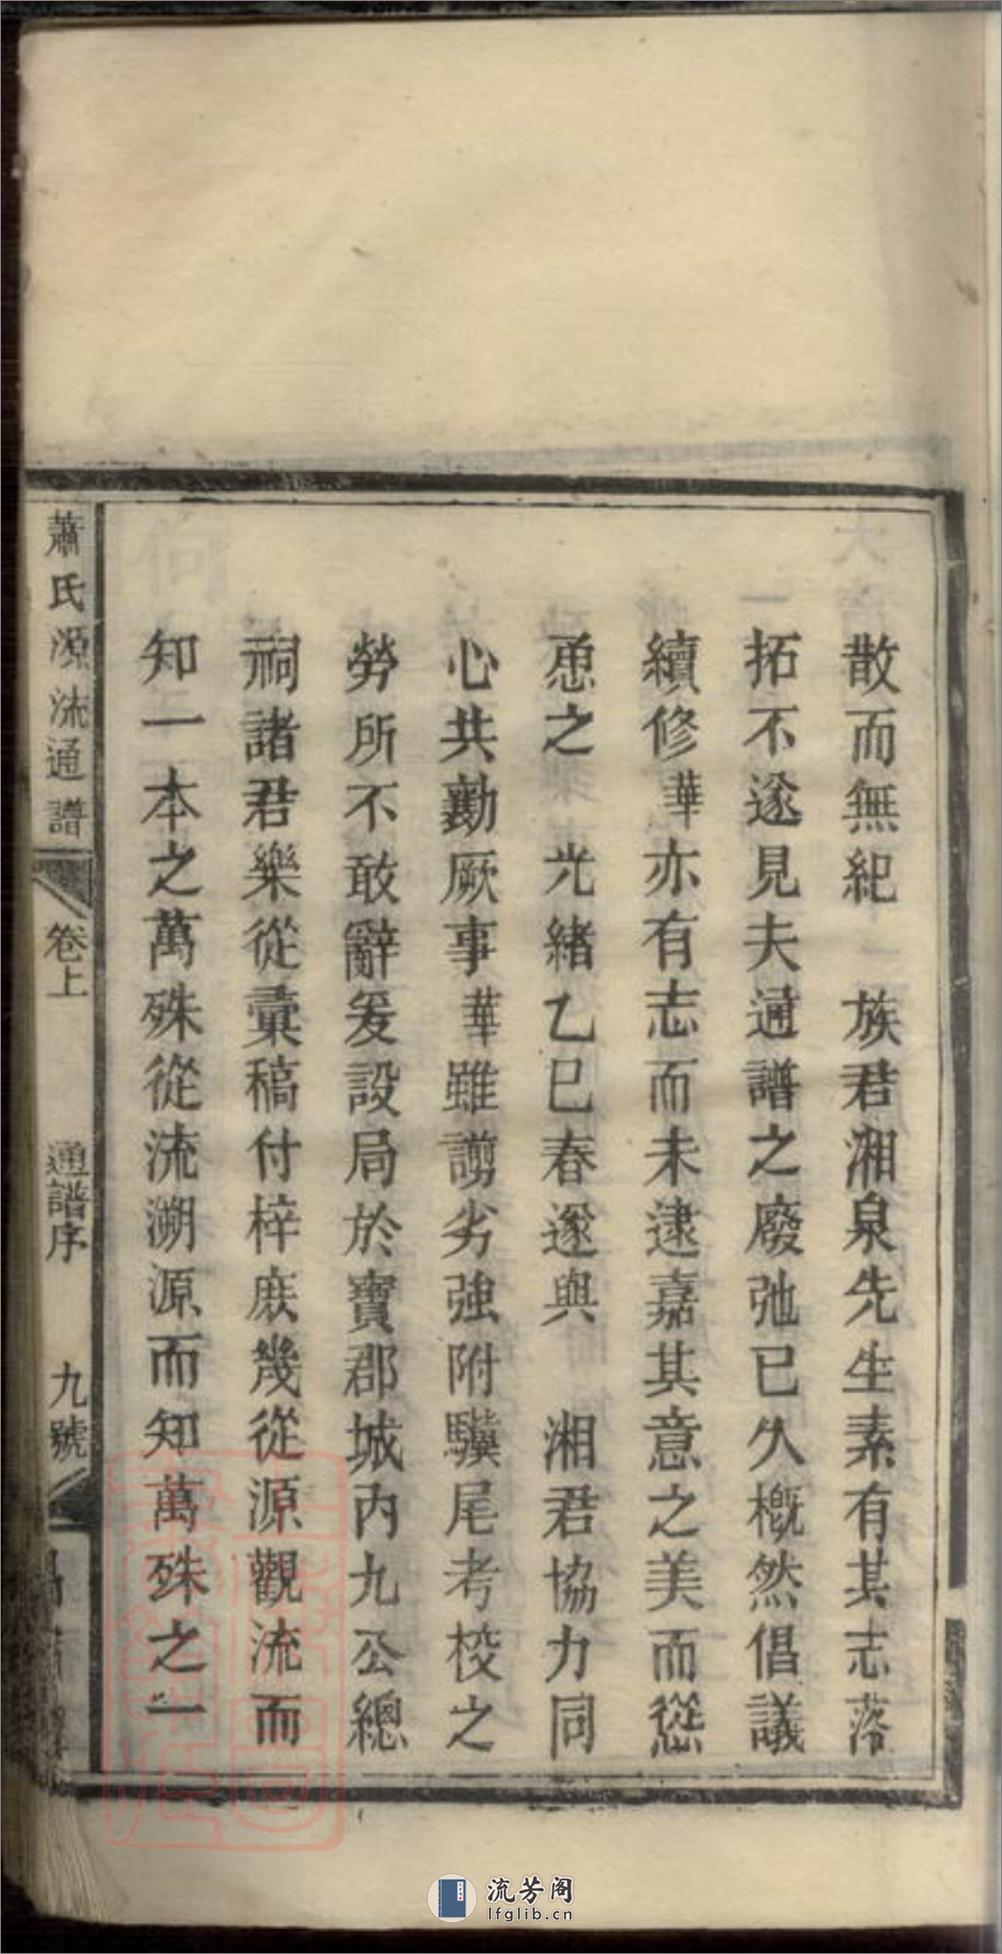 散而無紀 族君湘泉先生素有其志落
拓不遂見夫通譜之廢弛已久概然倡議
續修華亦有志而未逮嘉其意之美而慫
恿之 光緒乙巳春遂與 湘君協力同
心共勷厥事華雖謭劣強附驥尾考校之
勞所不敢辭爰設局於寶郡城內九公總
祠諸君樂從彙稿付梓庶幾從源觀流而
知一本之萬殊從流溯源而知萬殊之一
蕭氏源流通譜 卷上 通譜序 九號
流芳阁
lfglib.cn